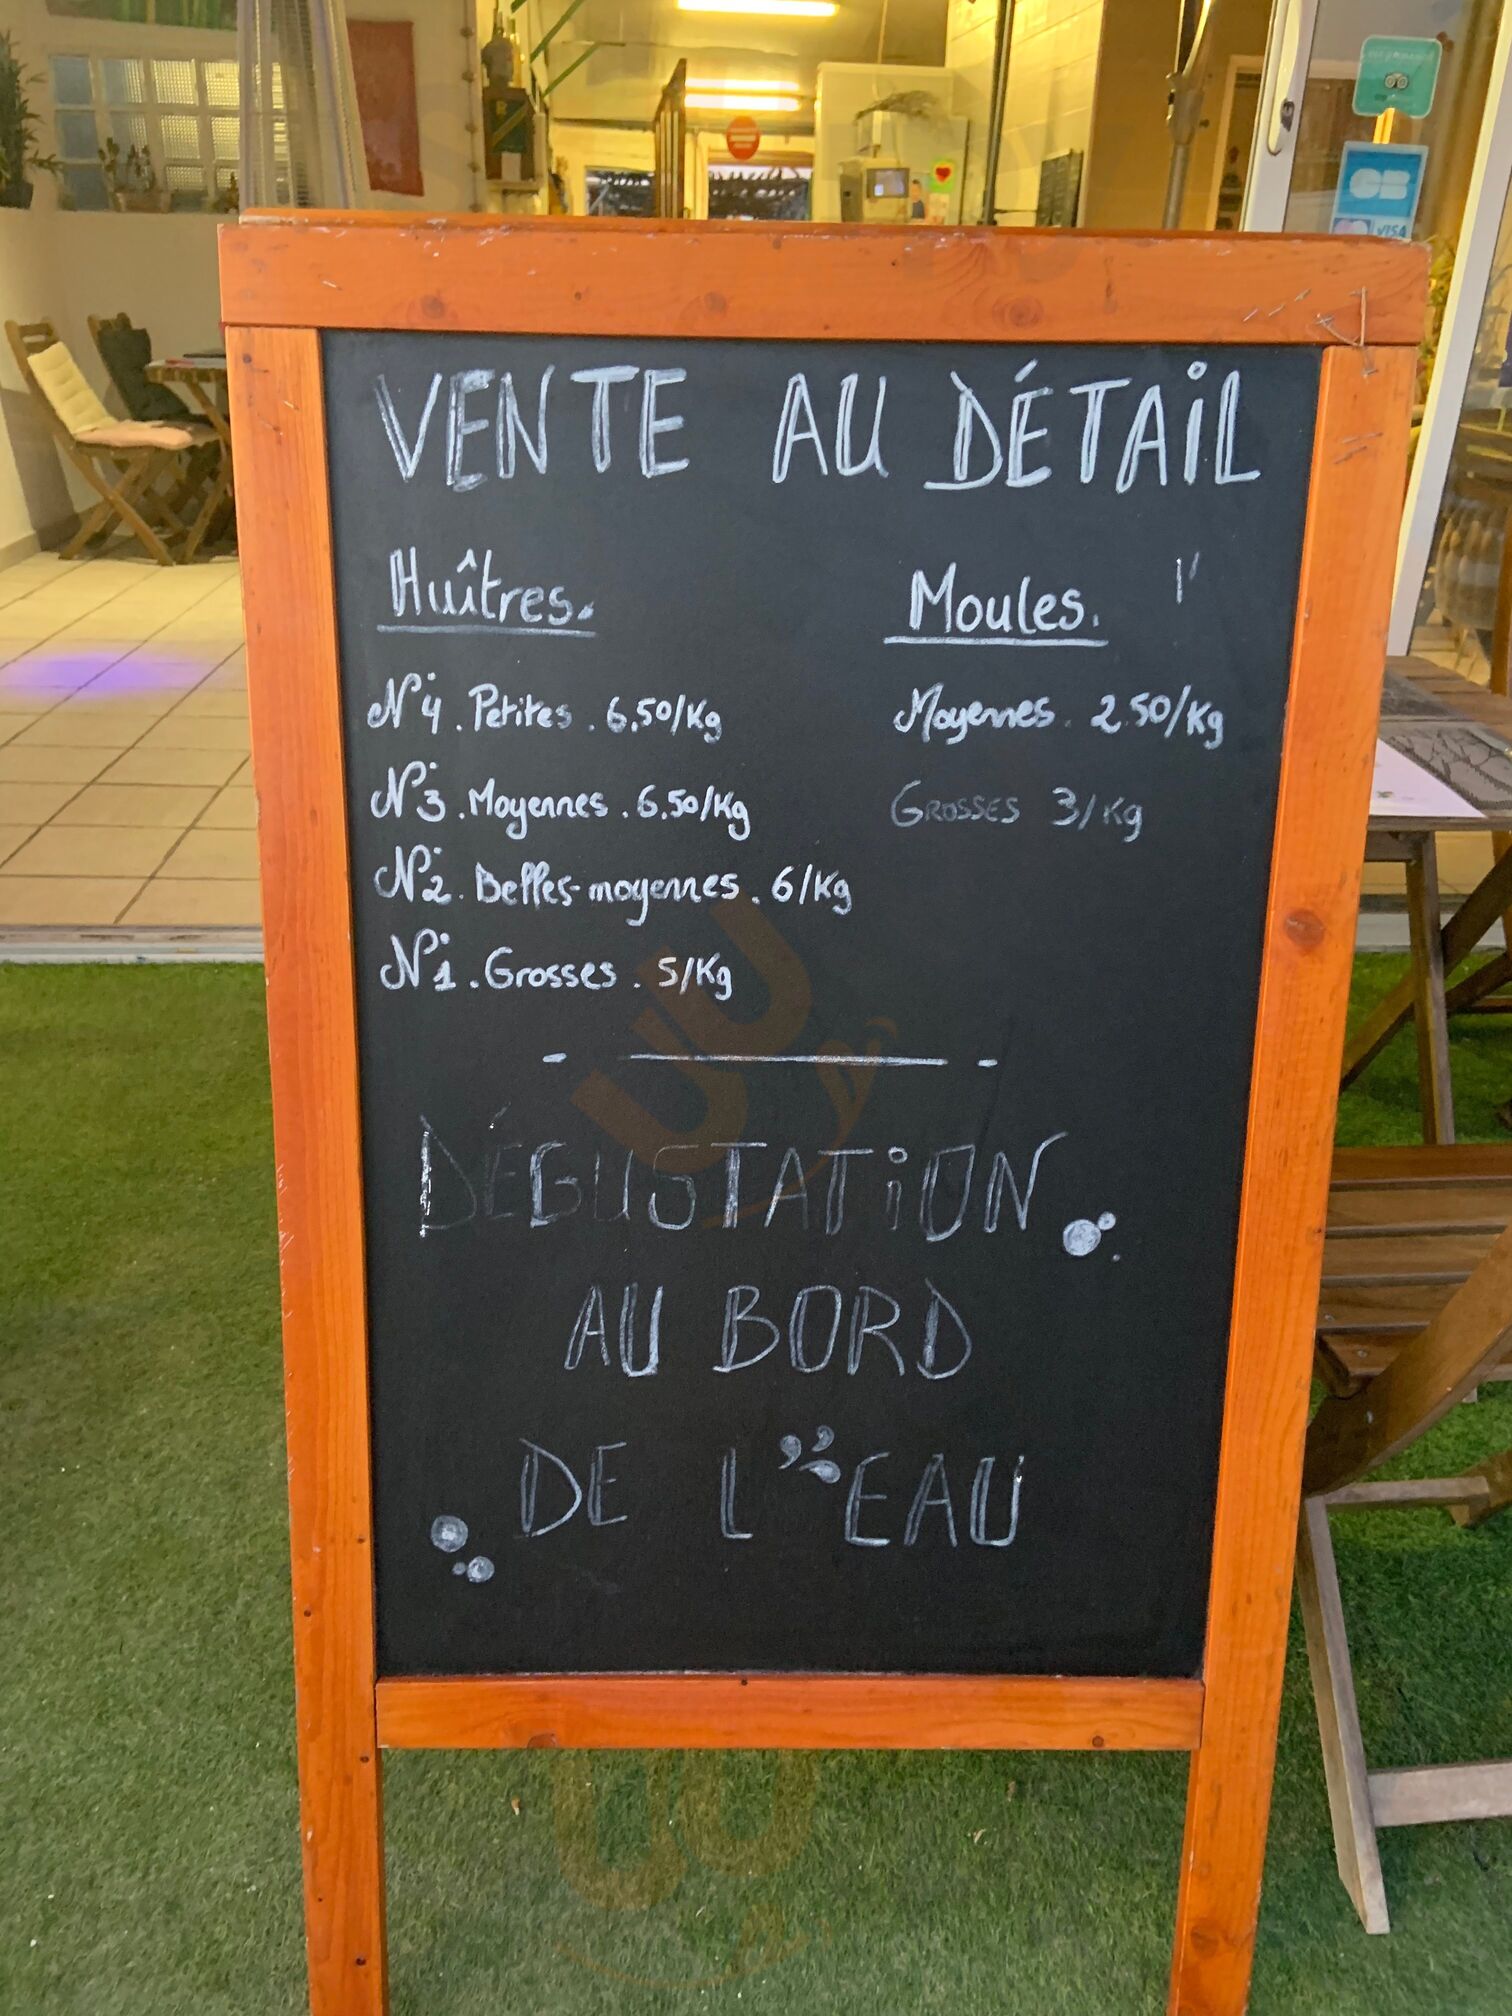 CB
VISA
VENTE AU DÉTAiL
Huîtres.
N°4. Petites. 6,50/Kg
N°3. Moyennes. 6.50/Kg
N°2. Belles-moyennes. 6/Kg
N°1. Grosses. 5/Kg
Moules.
Moyennes. 2.50/Kg
GROSSES 3/Kg
DÉGUSTATiON
AU BORD
DE L'EAU